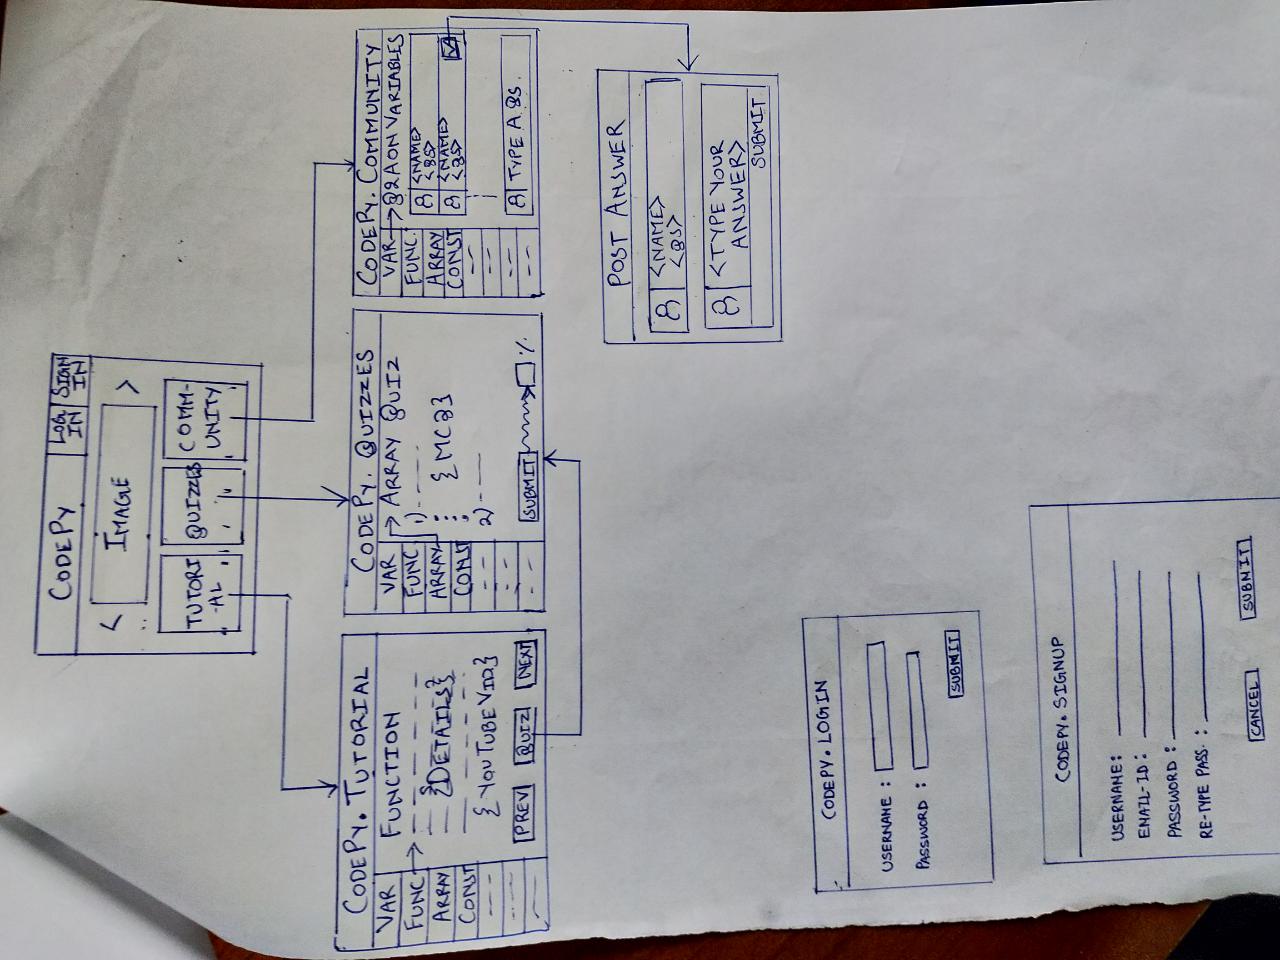 CODEPY
LOG IN
SIGN IN
<
IMAGE
>
TUTORI
-AL
QUIZZES
COMM-
UNITY
CODEPY. TUTORIAL
VAR
FUNC
ARRAY
CONST
FUNCTION
{DETAILS}
{YOUTUBE VID}
PREV
QUIZ
NEXT
CODEPY. QUIZZES
VAR
FUNC
ARRAY
CONST
ARRAY QUIZ
1)
{MCQ}
2)
SUBMIT
%
CODEPY. COMMUNITY
VAR
FUNC.
ARRAY
CONST
Q&A ON VARIABLES
<NAME>
<QS>
<NAME>
<QS>
TYPE A QS.
POST ANSWER
<NAME>
<QS>
<TYPE YOUR
ANSWER>
SUBMIT
CODEPY. LOGIN
USERNAME :
PASSWORD :
SUBMIT
CODEPY. SIGNUP
USERNAME:
EMAIL-ID :
PASSWORD :
RE-TYPE PASS. :
CANCEL
SUBMIT